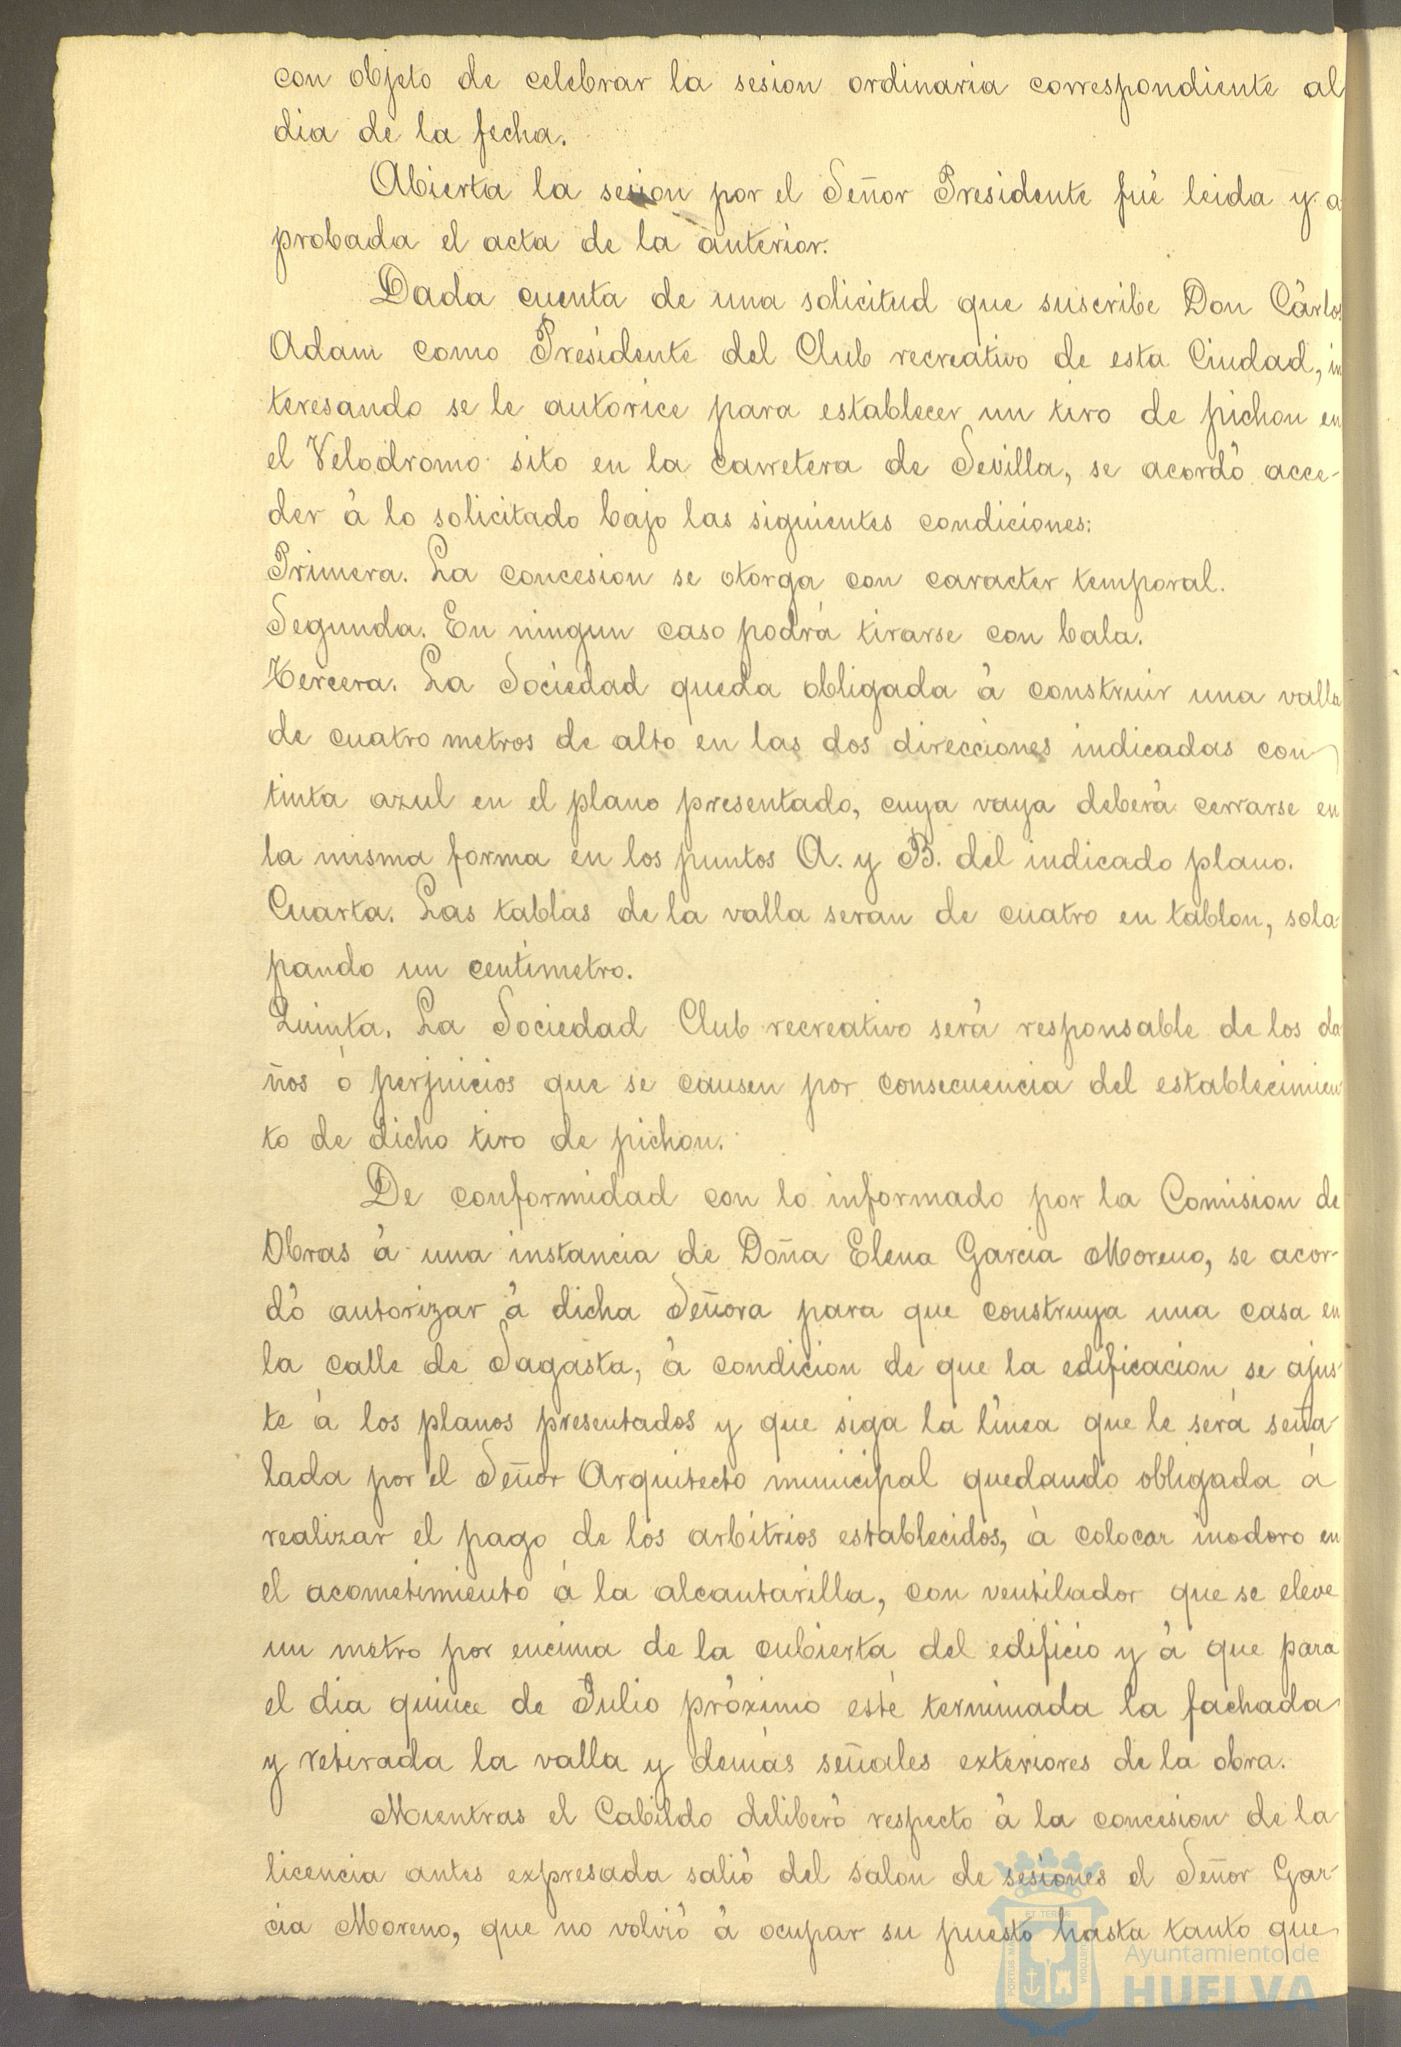 con objeto de celebrar la sesion ordinaria correspondiente al
dia de la fecha.
Abierta la sesion por el Señor Presidente fué leida y a
probada el acta de la anterior.
Dada cuenta de una solicitud que suscribe Don Cárlos
Adam como Presidente del Club recreativo de esta Ciudad, in
teresando se le autorice para establecer un tiro de pichon en
el Velodromo sito en la carretera de Sevilla, se acordó acce-
der á lo solicitado bajo las siguientes condiciones:
Primera. La concesion se otorga con caracter temporal.
Segunda. En ningun caso podrá tirarse con bala.
Tercera. La Sociedad queda obligada á construir una valla
de cuatro metros de alto en las dos direcciones indicadas con
tinta azul en el plano presentado, cuya vaya deberá cerrarse en
la misma forma en los puntos A. y B. del indicado plano.
Cuarta. Las tablas de la valla seran de cuatro en tablon, sola
pando un centímetro.
Quinta. La Sociedad Club recreativo será responsable de los da
ños ó perjuicios que se causen por consecuencia del establecimien
to de dicho tiro de pichon.
De conformidad con lo informado por la Comision de
Obras á una instancia de Doña Elena Garcia Moreno, se acor-
dó autorizar á dicha Señora para que construya una casa en
la calle de Sagasta, á condicion de que la edificacion se ajus-
te á los planos presentados y que siga la línea que le será seña-
lada por el Señor Arquitecto municipal quedando obligada á
realizar el pago de los arbitrios establecidos, á colocar inodoro en
el acometimiento á la alcantarilla, con ventilador que se eleve
un metro por encima de la cubierta del edificio y á que para
el dia quince de Julio próximo esté terminada la fachada
y retirada la valla y demás señales exteriores de la obra.
Mientras el Cabildo deliberó respecto á la concesion de la
licencia antes expresada salió del salon de sesiones el Señor Gar-
cia Moreno, que no volvió á ocupar su puesto hasta tanto que
Ayuntamiento de
HUELVA